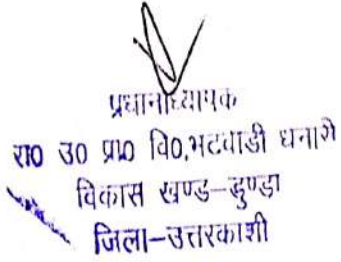 प्रधानाध्यापक
रा0 उ0 प्रा0 वि0,भटवाडी धनारी
विकास खण्ड–डुण्डा
जिला–उत्तरकाशी